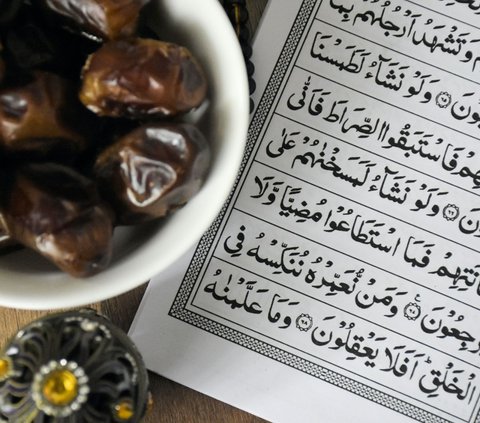 وَتَشْهَدُ اَرْجُلُهُمْ بِمَا
بُوْنَ ۝٦٥ وَلَوْ نَشَآءُ لَطَمَسْنَا
هِمْ فَاسْتَبَقُوا الصِّرَاطَ فَاَنّٰى
وْنَ ۝٦٦ وَلَوْ نَشَآءُ لَمَسَخْنٰهُمْ عَلٰى
انَتِهِمْ فَمَا اسْتَطَاعُوْا مُضِيًّا وَّلَا
رْجِعُوْنَ ۝٦٧ وَمَنْ نُّعَمِّرْهُ نُنَكِّسْهُ فِى
الْخَلْقِ ؕ اَفَلَا يَعْقِلُوْنَ ۝٦٨ وَمَا عَلَّمْنٰهُ